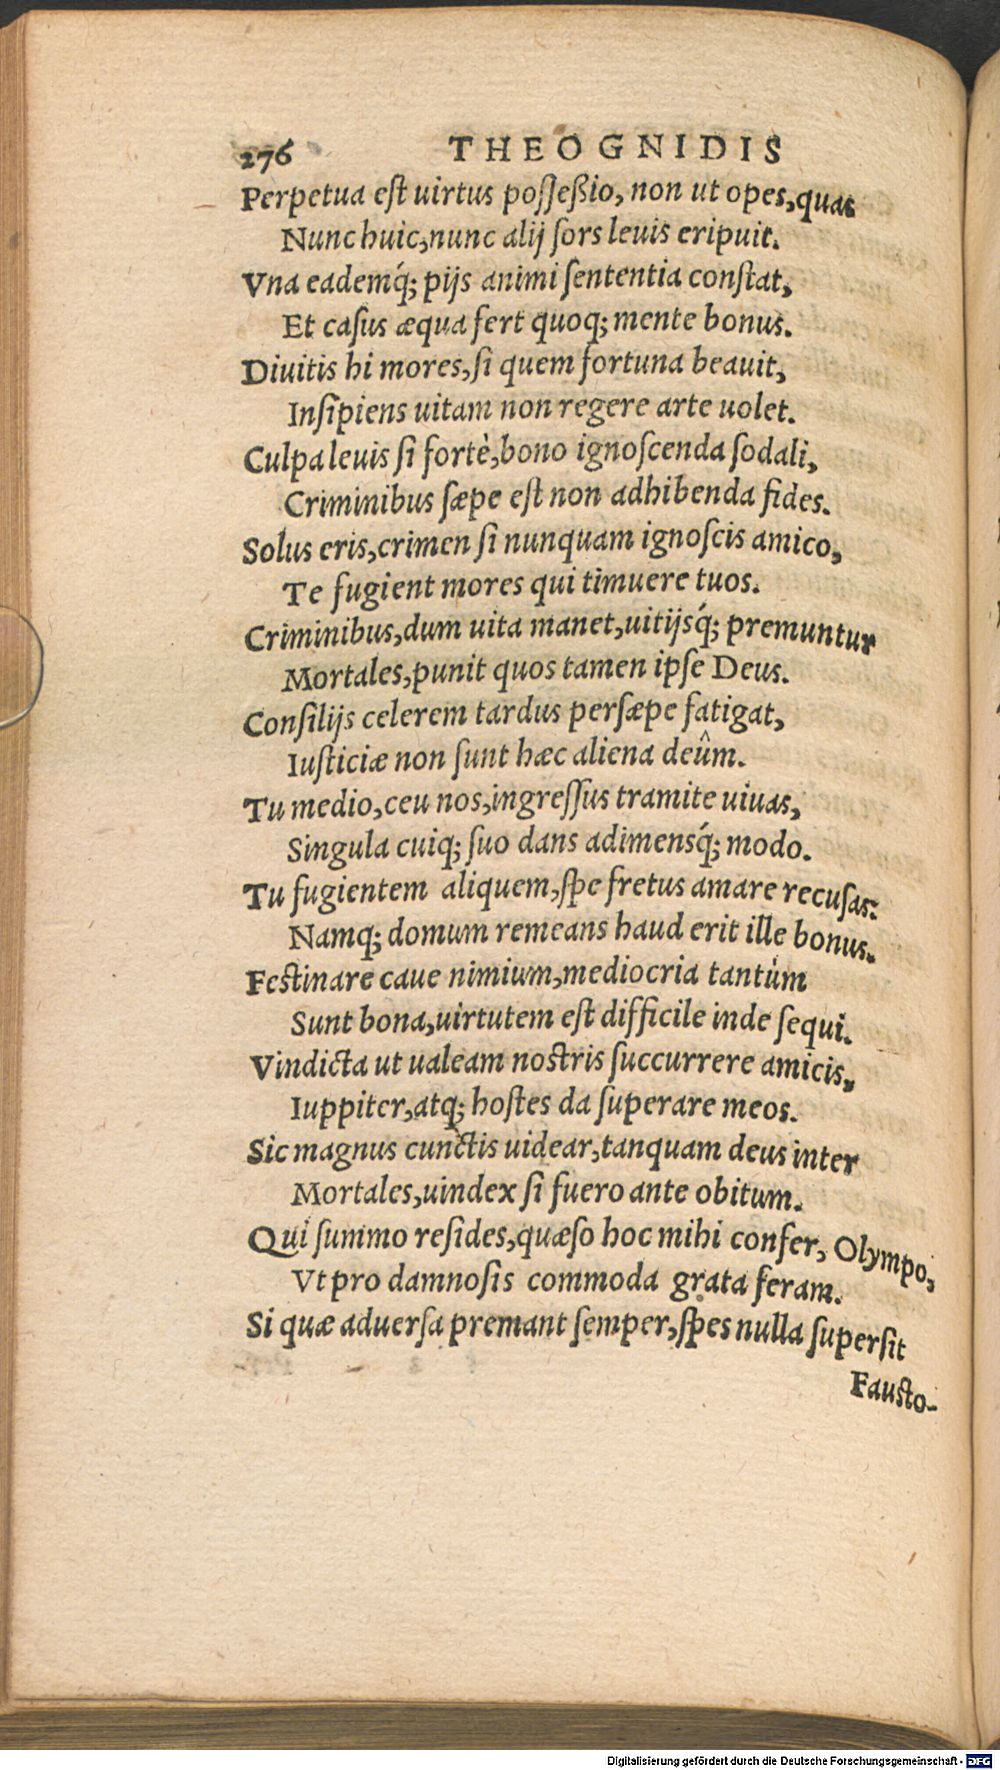 276 THEOGNIDIS
Perpetua eſt uirtus poſſeßio, non ut opes, quas
Nunc huic, nunc alij ſors leuis eripuit.
Vna eademq́; pijs animi ſententia conſtat,
Et caſus æqua fert quoq; mente bonus.
Diuitis hi mores, ſi quem fortuna beauit,
Inſipiens uitam non regere arte uolet.
Culpa leuis ſi fortè, bono ignoſcenda ſodali,
Criminibus ſæpe eſt non adhibenda fides.
Solus eris, crimen ſi nunquam ignoſcis amico,
Te fugient mores qui timuere tuos.
Criminibus, dum uita manet, uitijsq́; premuntur
Mortales, punit quos tamen ipſe Deus.
Conſilijs celerem tardus perſæpe fatigat,
Iuſticiæ non ſunt hæc aliena deûm.
Tu medio, ceu nos, ingreſſus tramite uiuas,
Singula cuiq; ſuo dans adimensq́; modo.
Tu fugientem aliquem, ſpe fretus amare recuſas:
Namq; domum remeans haud erit ille bonus.
Feſtinare caue nimium, mediocria tantùm
Sunt bona, uirtutem eſt difficile inde ſequi.
Vindicta ut ualeam noſtris ſuccurrere amicis,
Iuppiter, atq; hoſtes da ſuperare meos.
Sic magnus cunctis uidear, tanquam deus inter
Mortales, uindex ſi fuero ante obitum.
Qui ſummo reſides, quæſo hoc mihi confer, Olympo,
Vt pro damnoſis commoda grata feram.
Si quæ aduerſa premant ſemper, ſpes nulla ſuperſit
Fauſto-
Digitalisierung gefördert durch die Deutsche Forschungsgemeinschaft - DFG